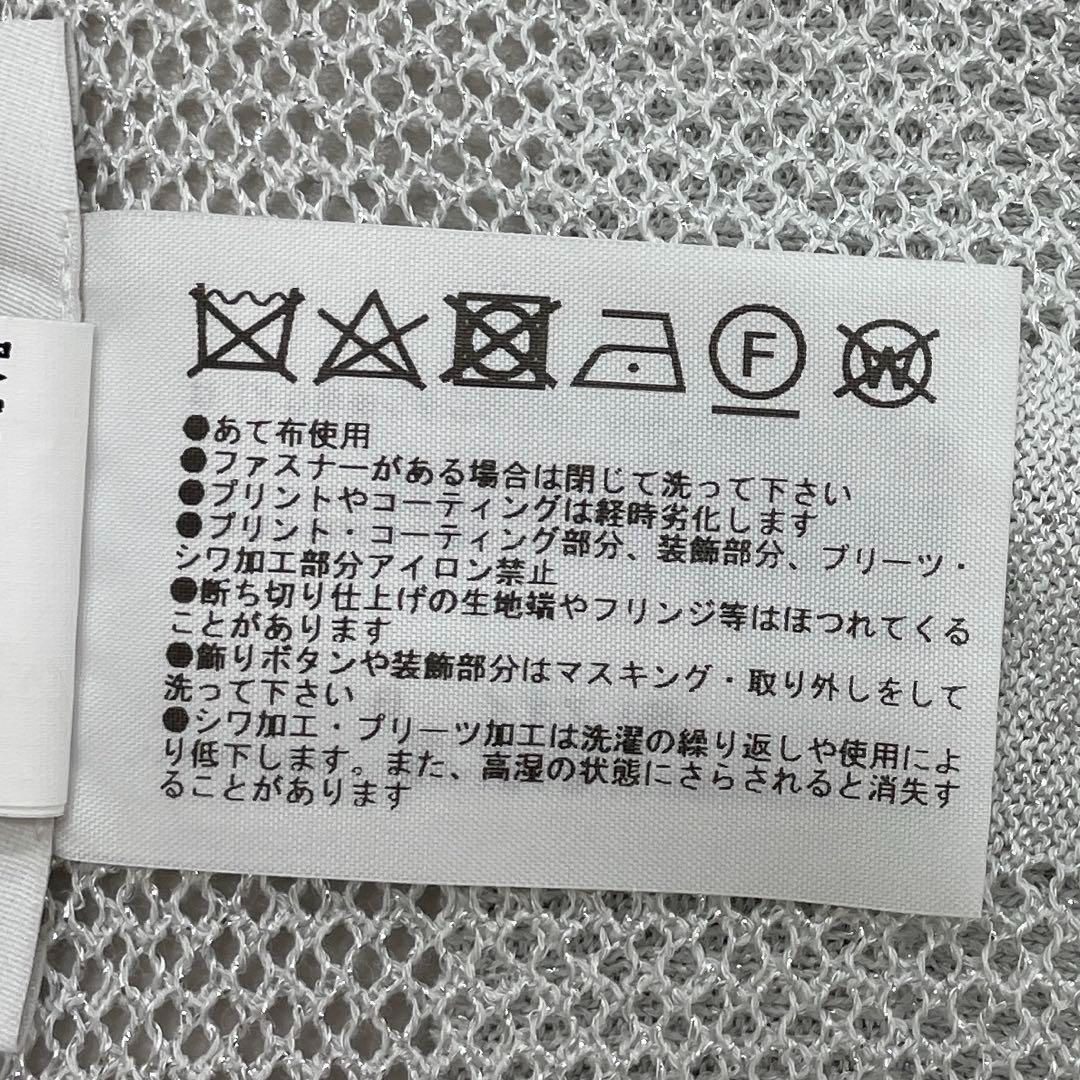 F W
●あて布使用
●ファスナーがある場合は閉じて洗って下さい
●プリントやコーティングは経時劣化します
●プリント・コーティング部分、装飾部分、プリーツ・
シワ加工部分アイロン禁止
●断ち切り仕上げの生地端やフリンジ等はほつれてくる
ことがあります
●飾りボタンや装飾部分はマスキング・取り外しをして
洗って下さい
●シワ加工・プリーツ加工は洗濯の繰り返しや使用によ
り低下します。また、高湿の状態にさらされると消失す
ることがあります